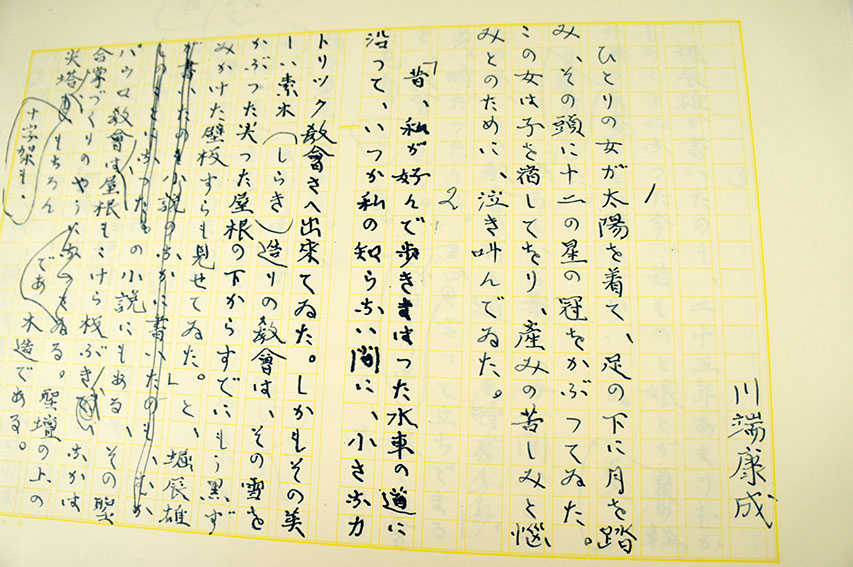 川端康成
1
ひとりの女が太陽を着て、足の下に月を踏
み、その頭に十二の星の冠をかぶつてゐた。
この女は子を宿してをり、產みの苦しみと惱
みとのために、泣き叫んでゐた。
2
「昔、私が好んで歩きまはつた水車の道に
沿つて、いつか私の知らない間に、小さなカ
トリック敎會さへ出來てゐた。しかもその美
しい素木（しらき）造りの敎會は、その雪を
かぶつた尖つた屋根の下からすでにもう黑ず
みかけた壁板すらも見せてゐた。」と、堀辰雄
が書いた
の小説にもある、その聖
パウロ敎會は屋根もこけら板ぶき
合掌づくりのやう
尖塔がもちろん
ゐる。聖壇の上の
十字架も、
木造である。